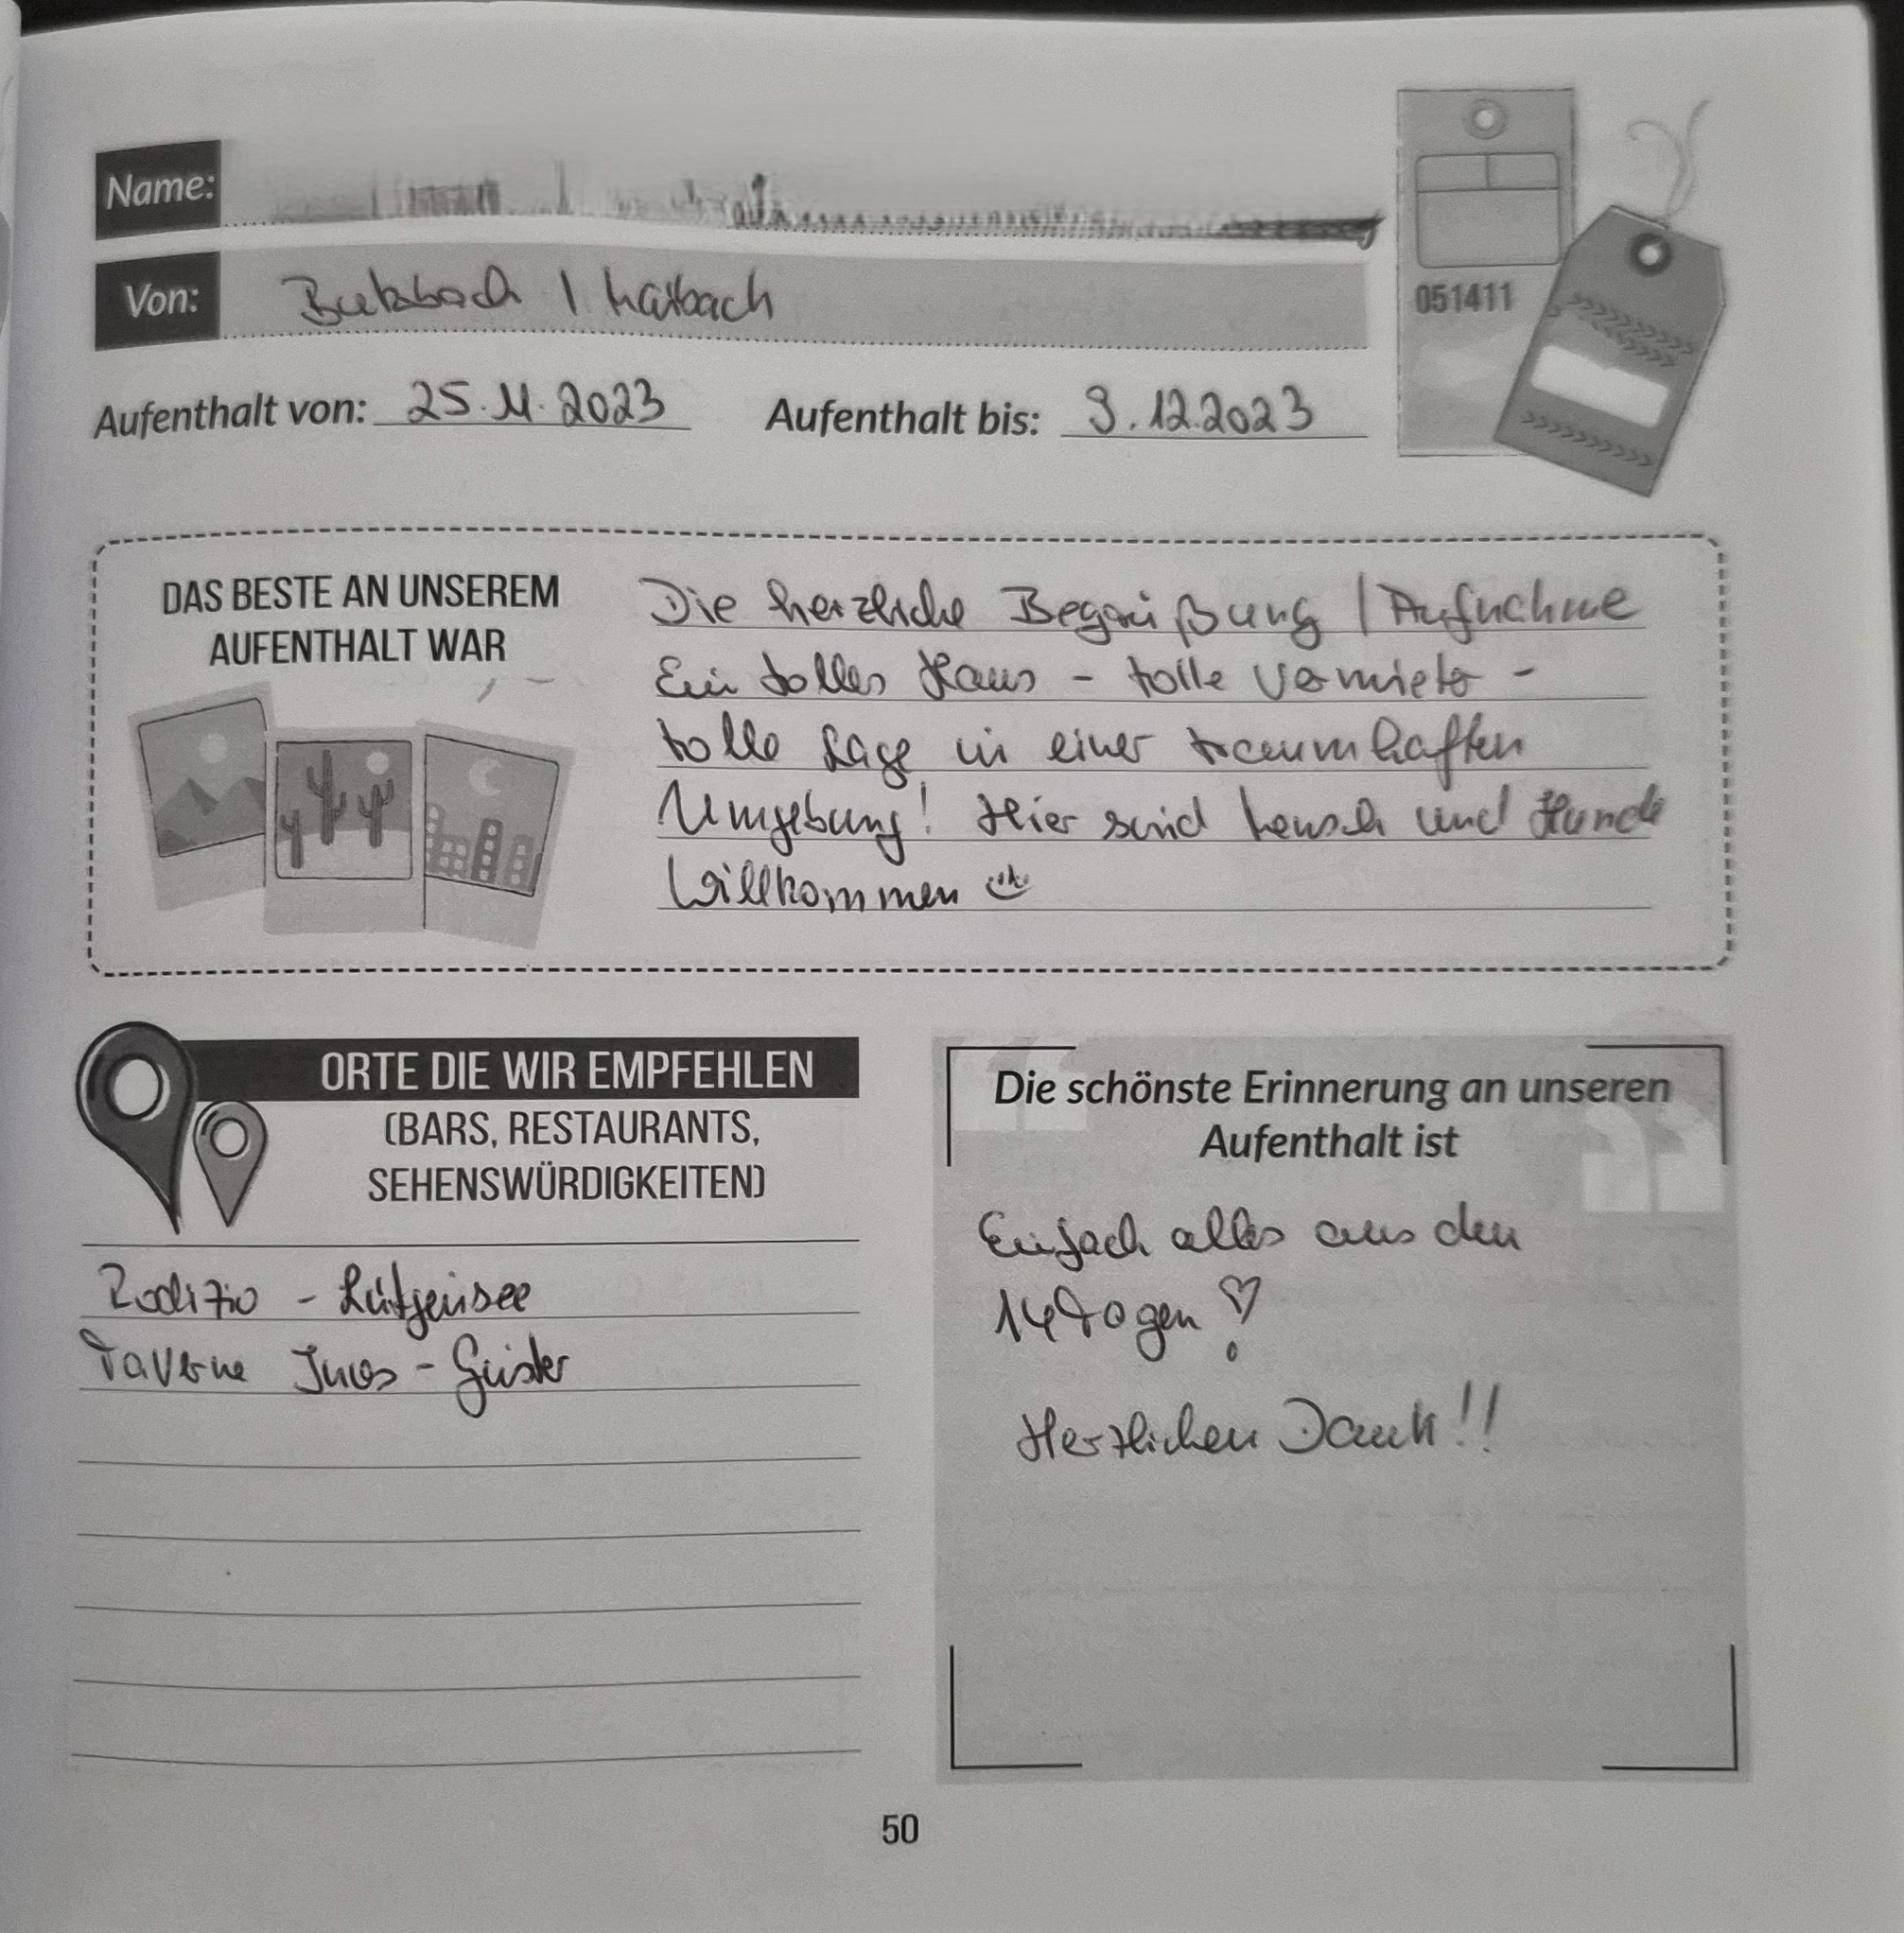 Name:
Von: Butzbach / Maibach
051411
Aufenthalt von: 25.11.2023 Aufenthalt bis: 9.12.2023
DAS BESTE AN UNSEREM
AUFENTHALT WAR
Die herzliche Begrüßung / Aufnahme
Ein tolles Haus - tolle Vermieter -
tolle Lage in einer traumhaften
Umgebung! Hier sind Mensch und Hunde
Willkommen
ORTE DIE WIR EMPFEHLEN
(BARS, RESTAURANTS,
SEHENSWÜRDIGKEITEN)
Rodizio - Lütjensee
Taverne
Die schönste Erinnerung an unseren
Aufenthalt ist
Einfach alles aus den
14 Tagen
Herzlichen Dank!!
50